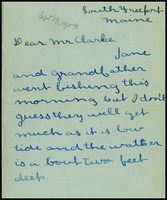 South Freeport
Maine
Sept 13, 1903
Dear Mr Clarke.
Jane
and grandfather
went fishing this
morning but I don't
guess they will get
much as it is low
tide and the watter
is a bout two feet
deep.